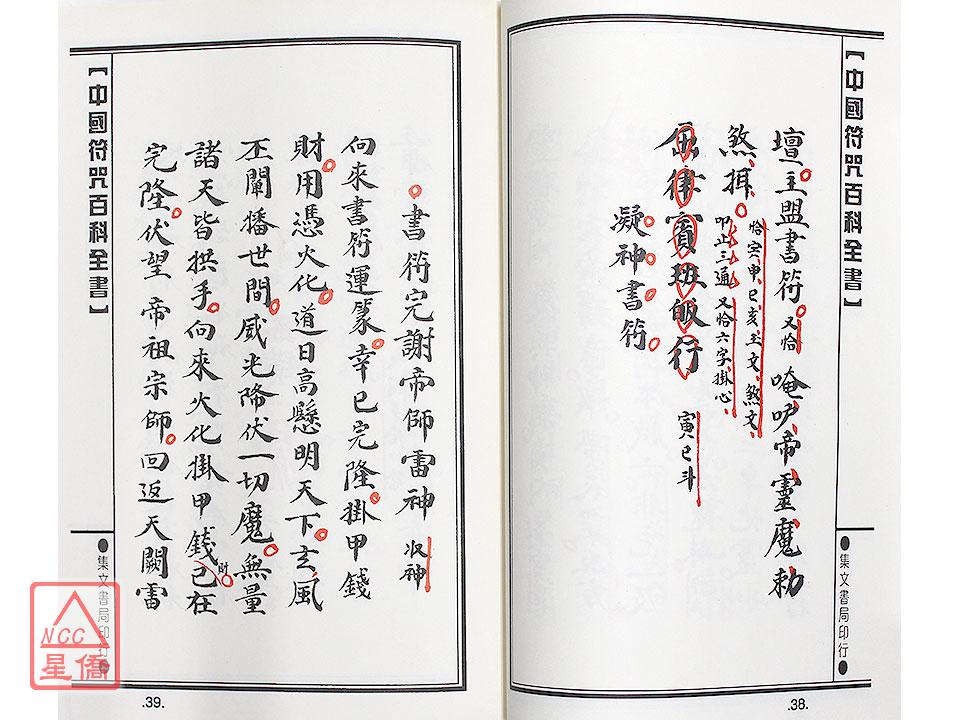 【中國符咒百科全書】
壇主盟書符又恰唵吽帝靈魔勅
煞揖
恰寅申巳亥主文煞文
叩止三通又恰六字掛心
賓班皈行
寅巳斗
凝神書符
●集文書局印行●
.38.
【中國符咒百科全書】
書符完謝帝師雷神 収神
向來書符運篆幸已完隆掛甲錢
財用憑火化道日高懸明天下玄風
丕闡播世間威光降伏一切魔無量
諸天皆拱手向來火化掛甲錢財已在
完隆伏望帝祖宗師回返天闕雷
●集文書局印行●
.39.
NCC
星僑